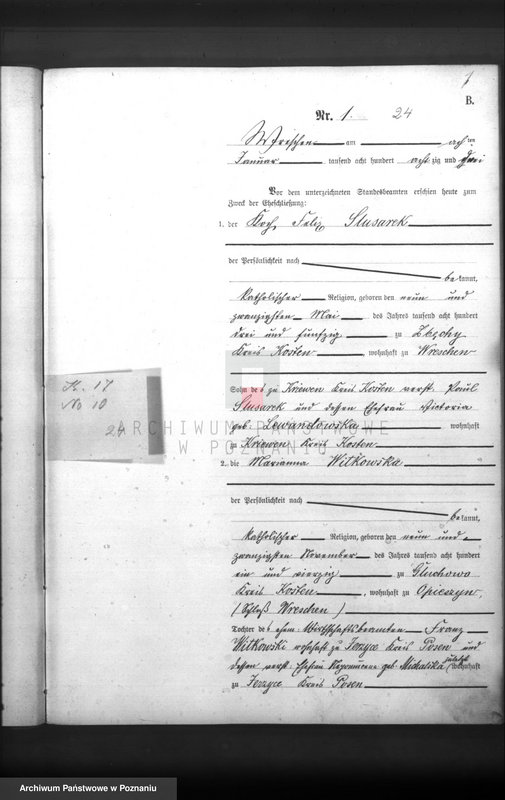 1
B.
Nr. 1. 24
Wreschen am acht ten
Januar tausend acht hundert achtzig und drei
Vor dem unterzeichneten Standesbeamten erschien heute zum
Zweck der Eheschließung:
1. der Koch Felix Slusarek
der Persönlichkeit nach
bekannt,
katholischer Religion, geboren den neun und
zwanzigsten Mai des Jahres tausend acht hundert
drei und fünfzig zu Zbęchy
Kreis Kosten, wohnhaft zu Wreschen
Sohn des zu Kriewen Kreis Kosten verst. Paul
Slusarek und dessen Ehefrau Victoria
geb. Lewandowska wohnhaft
zu Kriewen Kreis Kosten
2. die Marianna Witkowska
der Persönlichkeit nach
bekannt,
katholischer Religion, geboren den neun und
zwanzigsten November des Jahres tausend acht hundert
ein und vierzig zu Gluchowo
Kreis Kosten, wohnhaft zu Opieszyn,
(Schloß Wreschen)
Tochter des ehem. Wirthschaftsbeamten Franz
Witkowski wohnhaft zu Jerzyce Kreis Posen und
dessen verst. Ehefrau Nepomucena geb. Michalska zuletzt wohnhaft
zu Jerzyce Kreis Posen
K. 17
No 10
24
ARCHIWUM PAŃSTWOWE
W POZNANIU
Archiwum Państwowe w Poznaniu